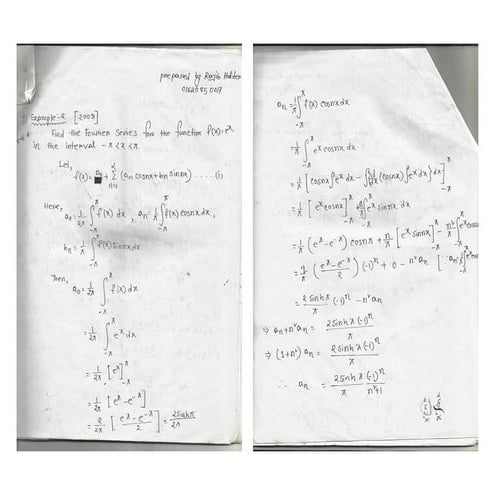 prepared by Rajib
Example-2. [2008]
Find the Fourier Series for the function f(x)=eˣ
in the interval -π<x<π.
Let,
f(x)= a₀ + ∑ (aₙ cosnx+bₙ sinnx) ..... (i)
n=1
Here,
a₀ = 1/2π ∫_{-π}^{π} f(x) dx , aₙ = 1/π ∫_{-π}^{π} f(x) cosnx dx ,
bₙ = 1/π ∫_{-π}^{π} f(x) sinnx dx
Then,
a₀ = 1/2π ∫_{-π}^{π} f(x) dx
= 1/2π ∫_{-π}^{π} eˣ dx
= 1/2π [eˣ]_{-π}^{π}
= 1/2π [e^π - e^{-π}]
= 2/2π [(e^π - e^{-π})/2] = 2sinhπ/2π
aₙ = 1/π ∫_{-π}^{π} f(x) cosnx dx
1/π ∫_{-π}^{π} eˣ cosnx dx
= 1/π [cosnx ∫eˣ dx - ∫{d/dx (cosnx) ∫eˣ dx} dx]_{-π}^{π}
= 1/π [eˣ cosnx]_{-π}^{π} + n/π ∫_{-π}^{π} eˣ sinnx dx
= 1/π (e^π - e^{-π}) cosnπ + n/π [eˣ sinnx]_{-π}^{π} - n²/π ∫_{-π}^{π} eˣ cosnx
= 2/π ((e^π - e^{-π})/2) (-1)ⁿ + 0 - n² aₙ
= 2sinhπ/π (-1)ⁿ - n² aₙ
⇒ aₙ + n² aₙ = 2sinhπ (-1)ⁿ/π
⇒ (1+n²) aₙ = 2sinhπ (-1)ⁿ/π
∴ aₙ = 2sinhπ/π (-1)ⁿ/(n²+1)